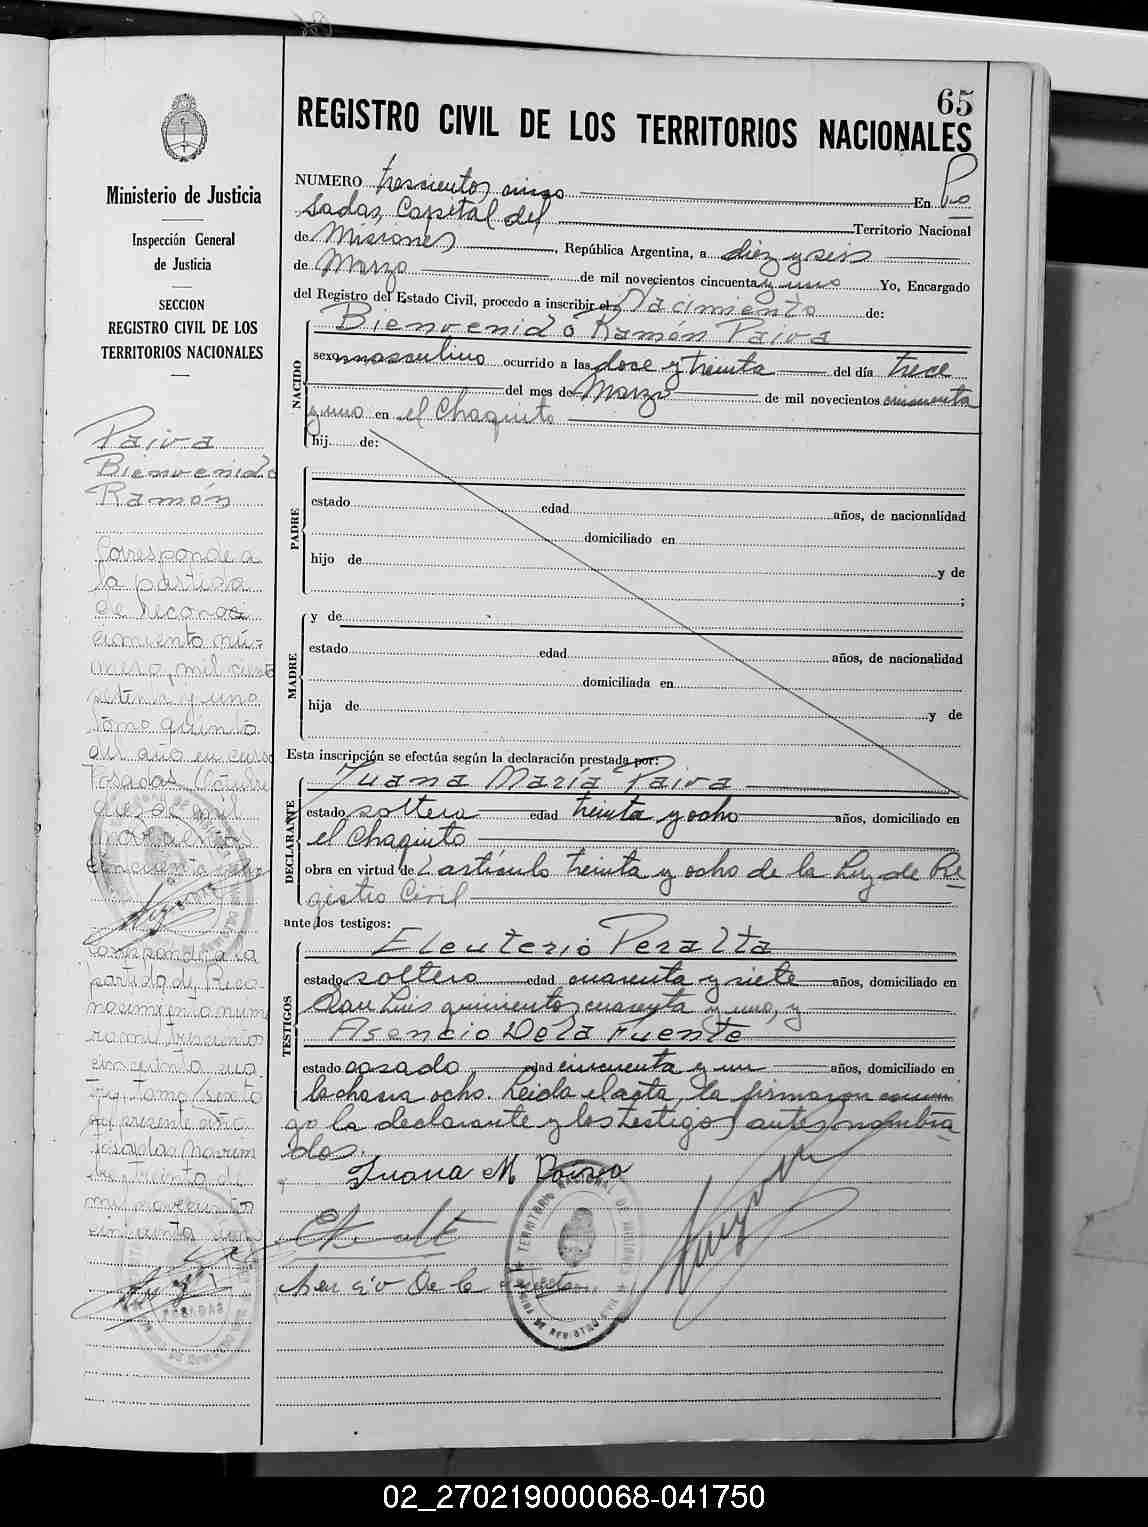 65
REGISTRO CIVIL DE LOS TERRITORIOS NACIONALES
Ministerio de Justicia
Inspección General
de Justicia
SECCION
REGISTRO CIVIL DE LOS
TERRITORIOS NACIONALES
NUMERO trescientos cinco En Po
sadas, Capital del Territorio Nacional
de Misiones, República Argentina, a diez y seis
de Marzo de mil novecientos cincuenta y uno Yo, Encargado
del Registro del Estado Civil, procedo a inscribir el Nacimiento de:
NACIDO
Bienvenido Ramón Paiva
sexo masculino ocurrido a las doce y treinta del día trece
del mes de Marzo de mil novecientos cincuenta
y uno en el Chaquito
hij de:
PADRE
estado edad años, de nacionalidad
domiciliado en
hijo de y de
;
MADRE
y de
estado edad años, de nacionalidad
domiciliada en
hija de y de
Esta inscripción se efectúa según la declaración prestada por:
DECLARANTE
Juana María Paiva
estado soltera edad treinta y ocho años, domiciliado en
el Chaquito
obra en virtud de l artículo treinta y ocho de la Ley de Re
gistro Civil
ante los testigos:
TESTIGOS
Eleuterio Peralta
estado soltero edad cuarenta y siete años, domiciliado en
San Luis quinientos cuarenta y uno, y
Asencio De la Fuente
estado casado edad cincuenta y un años, domiciliado en
la chacra ocho. Leida el acta, la firmaron conmi
go la declarante y los testigos antes nombra
dos.
Juana M Paiva
Asencio De la Fuente
Paiva
Bienvenido
Ramón
Corresponde a
la partida
de recono
cimiento nú-
mero, mil ciento
setenta y uno
tomo quinto
del año en curso
Posadas, Octubre
de mil
novecientos
cincuenta y uno
Corresponde a la
partida de Reco
nocimiento nume
ro mil trescientos
cincuenta
tomo sexto
del presente año
Posadas Noviem
bre treinta de
mil novecientos
cincuenta y uno
TERRITORIO NACIONAL DE MISIONES
POSADAS
02_270219000068-041750